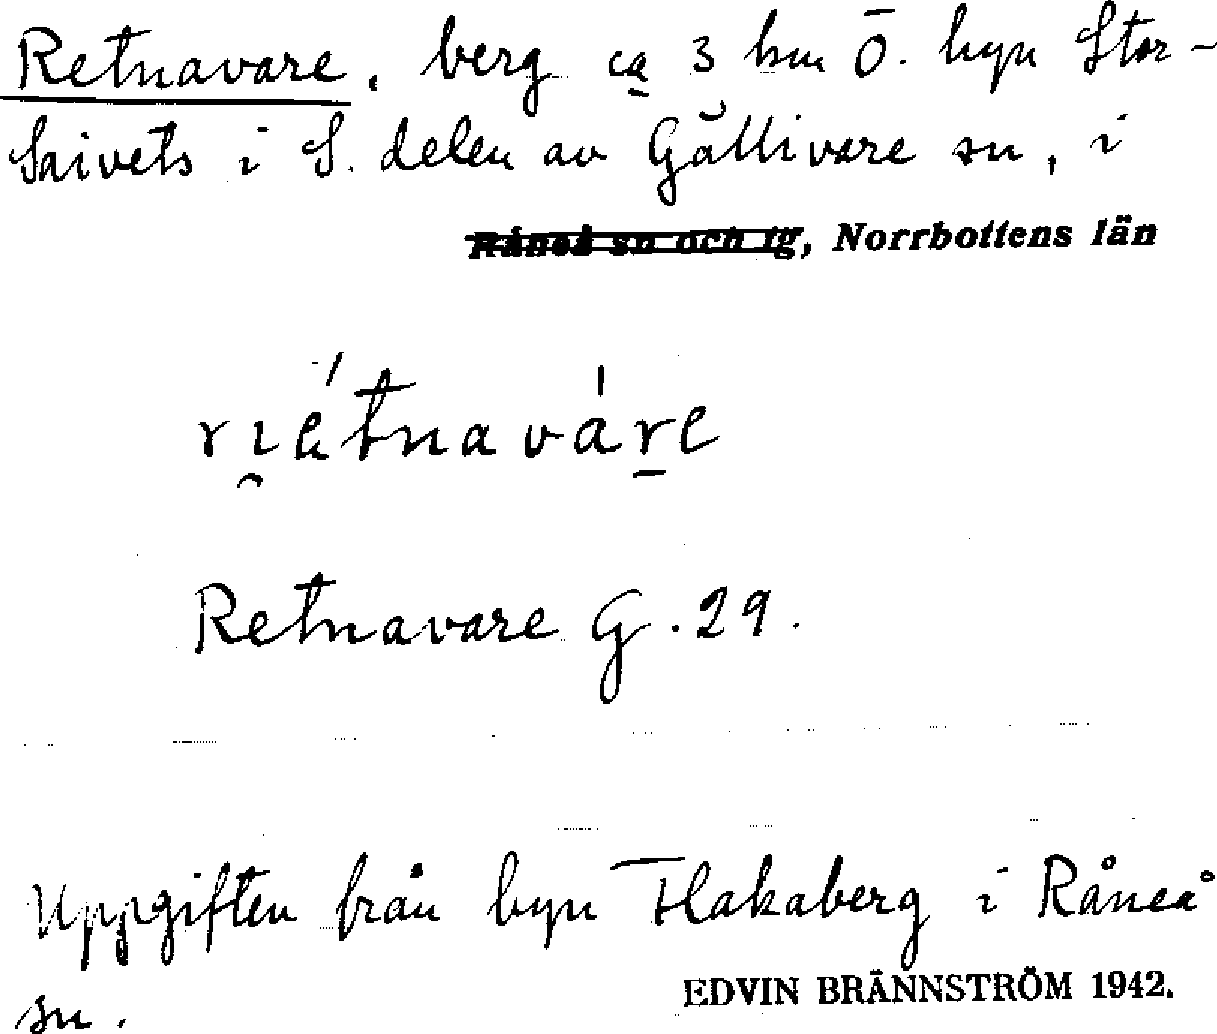 Retnavare, berg ca 3 km Ö. byn Stor-
Saivets i S. delen av Gällivare sn, i
Råneå sn och tg, Norrbottens län
ri̯étnaváre
Retnavare G. 29.
Uppgiften från byn Flakaberg i Råneå
sn.
EDVIN BRÄNNSTRÖM 1942.